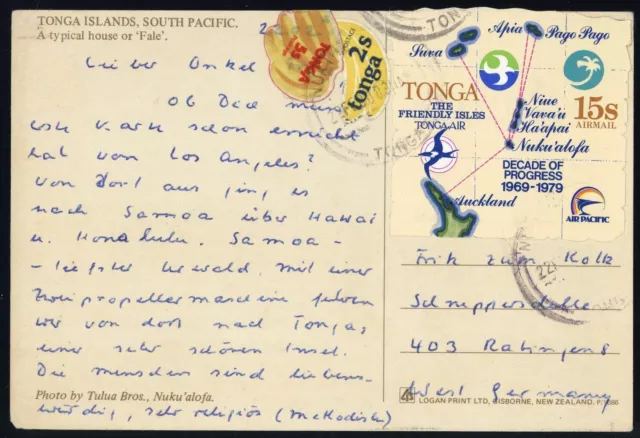 TONGA ISLANDS, SOUTH PACIFIC.
A typical house or 'Fale'.
Lieber Onkel
Ob Dich meine
erste Karte schon erreicht
hat von Los Angeles?
Von dort aus ging es
nach Samoa über Hawai
u. Honolulu. Samoa -
tiefster Urwald mit einer
Zweipropellermaschine fuhren
wir von dort nach Tonga,
einer sehr schönen Insel.
Die Menschen sind liebens-
würdig, sehr religiös (Methodisten)
Photo by Tulua Bros., Nuku'alofa.
TONGA
5s
POSTAGE
2s
tonga
Suva
Apia
Pago Pago
TONGA
THE
FRIENDLY ISLES
TONGA AIR
Niue
Vava'u
Ha'apai
Nuku'alofa
15s
AIRMAIL
DECADE OF
PROGRESS
1969-1979
Auckland
AIR PACIFIC
TONGA
Erik zum Kolk
403 Ratingen 8
West Germany
LOGAN PRINT LTD, GISBORNE, NEW ZEALAND.